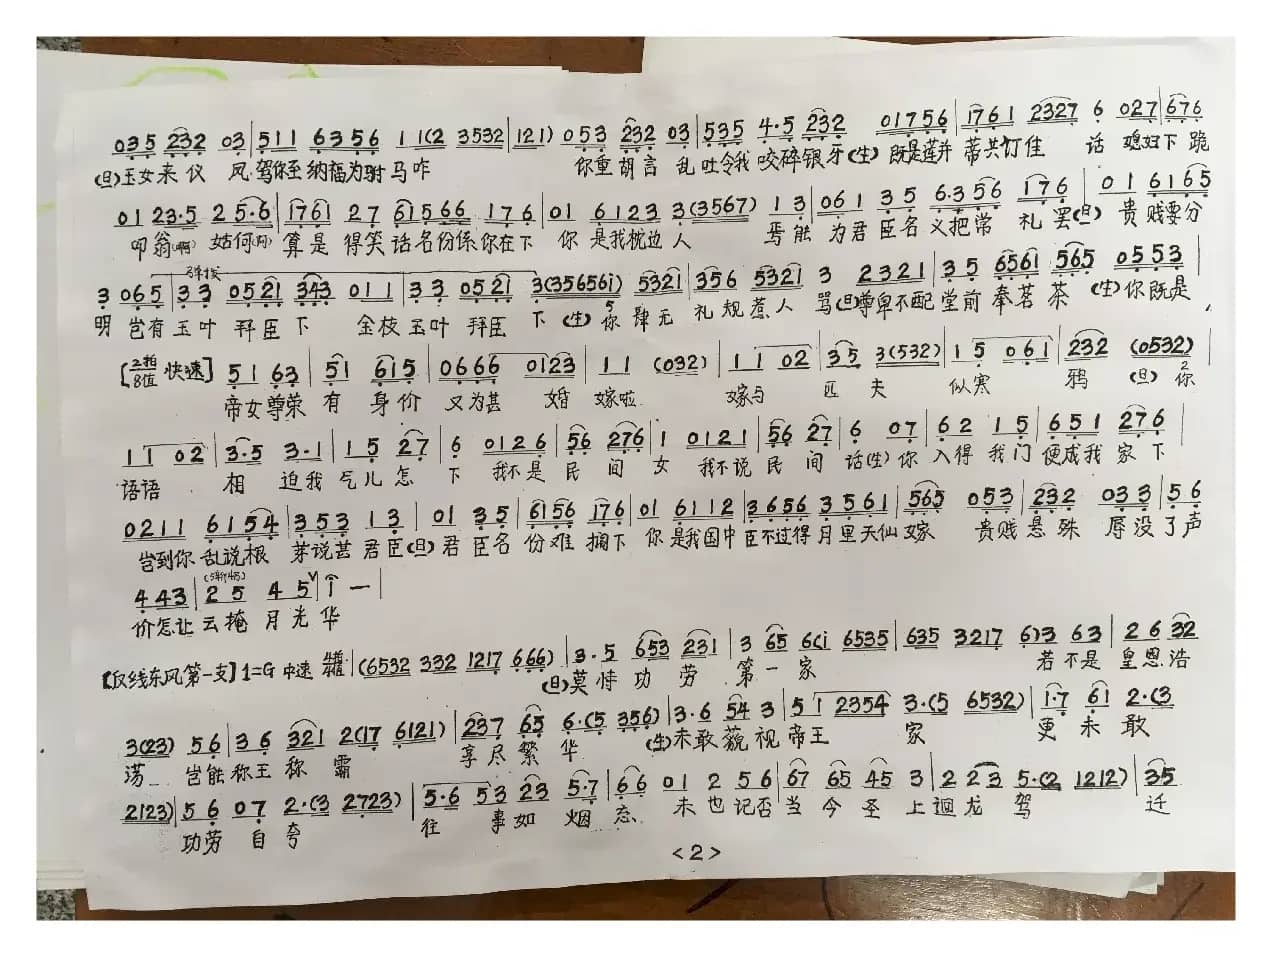 035 232 03|511 6356 11(2 3532|121) 053 232 03|535 4·5 232 01756|1761 2327 6 027|676
(旦)玉女来仪 风·驾你至纳福为驸马咋 你重胡言 乱吐令我咬碎银牙(生) 既是莲并 蒂共订佳 话 媳妇下跪
012 3·5 2 5·6|1761 27 61566 176|01 6123 3(3567) 13|061 35 6·356 176|01 6165
叩翁(啊) 姑何(何) 算是 得笑话名份係你在下 你 是我枕边人 焉能 为君臣名义把常 礼 罢(旦) 贵 贱要分
3 065|33 0521 343 011|33 0521 3(356561) 5321|356 5321 3 2321|35 6561 565 0553|
明 岂有玉叶 拜臣 下 金枝玉叶 拜臣 下 (生)你 肆无 礼规惹人 骂(旦)尊卑不配堂前奉茗 茶 (生)你既是
[2拍8值 快速] 51 63|51 615|0666 0123|11 (032)|11 02|35 3(532)|15 061|232 (0532)|
帝女尊荣 有 身价 又为甚 婚 嫁啦 嫁与 匹 夫 似寒 鸦 (旦) 你
11 02|3·5 3·1|15 27|6 0126|56 276|1 0121|56 27|6 07|62 15|651 276|
语语 相 迫我 气儿 怎 下 我不是 民 间 女 我不说 民 间 话(生)你 入得我门 便成我家下
0211 6154|353 13|01 35|6156 176|01 6112|3656 3561|565 053|232 033|56
岂到你 乱说根 茅说甚 君臣(旦) 君 臣名 份难 搁下 你是我国中 臣不过得月里天仙嫁 贵贱 悬殊 辱没了声
443|25 45ⱽ|1 —|
价怎让云掩月光华
[反线东风第一支] 1=G 中速 |(6532 332 1217 666)|3·5 653 231|3 65 6(i 6535|635 3217 6)3 63|26 32
(旦)莫恃 功 劳 第一家 若不是 皇恩浩
3(23) 56|36 321 2(17 6121)|237 65 6·(5 356)|3·6 54 3|51 2354 3·(5 6532)|1·7 61 2·(3
荡 岂能称王称霸 享尽繁华 (生)未敢藐视帝王 家 更 未敢
2123)|56 07 2·(3 2723)|5·6 53 23 5·7|66 01 2 56|67 65 45 3|2 23 5·(2 1212)|35
功劳 自 夸 往 事如 烟 忘 未也记否当 今 圣 上迴龙 驾 迁
<2>